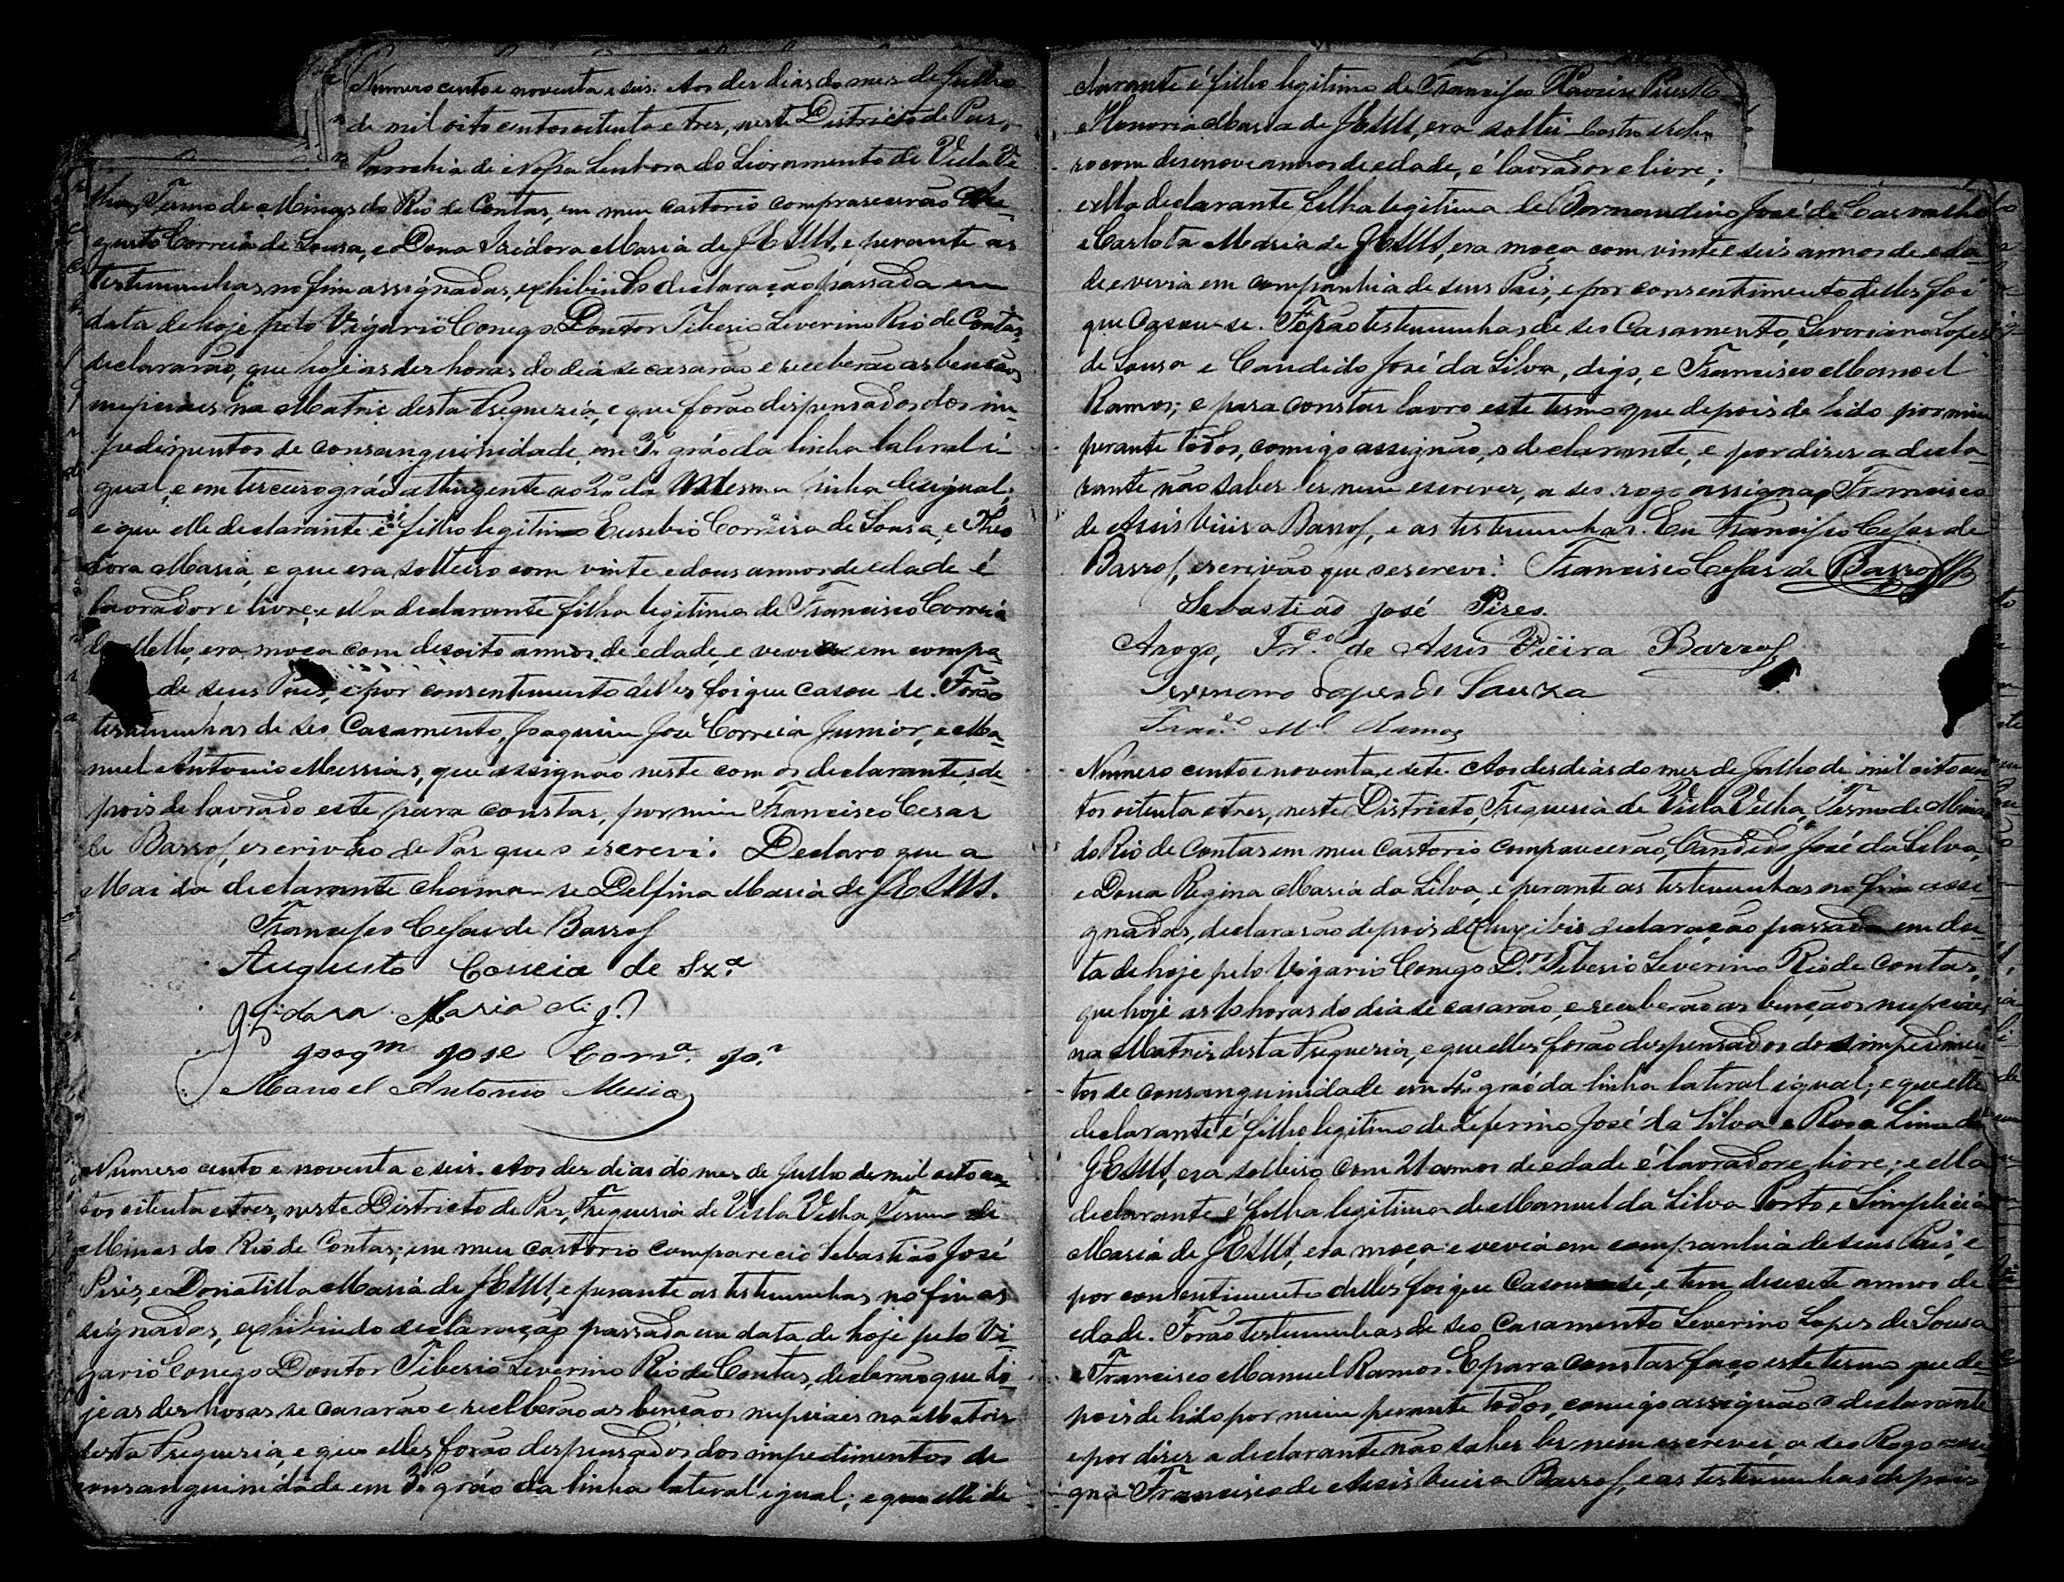 Numero cento e noventa e seis. Aos des dias do mes de Julho
de mil oito centos oitenta e tres, neste Districto de Pas,
Parochia de Nossa Senhora do Livramento de Villa Ve
lha, Termo de Minas do Rio de Contas, em meu cartorio comparecerão Au-
gusto Correia de Sousa, e Dona Izidora Maria de JESUS, e perante as
testimunhas no fim assignadas, exhibindo declaração passada em
data de hoje pelo Vigario Conego Doutor Tiberio Severino Rio de Contas,
declararão, que hoje as des horas do dia se casarão e receberão as bençãos
nupciaes na Matris desta Freguezia, e que forão dispensados dos im-
pedimentos de consanguinidade em 3º gráo da linha lateral i
gual, e em terceiro gráo attingente ao 2º da mesma linha desigual;
e que elle declarante é filho legitimo Eusebio Correia de Sousa, e Theo
dora Maria, e que era solteiro com vinte e dous annos de edade é
lavrador e livre; e ella declarante filha legitima de Francisco Correia
de Mello, era moça com desoito annos de edade, e vevia em compa-
de seus Pais, e por consentimento delles foi que casou-se. Forão
testimunhas de seo Casamento, Joaquim José Correia Junior, e Ma-
nuel Antonio Messias, que assignão neste com os declarantes, de-
pois de lavrado este para constar, por mim Francisco Cesar
de Barros, escrivão de Pas que o escrevi. Declaro que a
Mai da declarante chama-se Delfina Maria de JESUS.
Francisco Cesar de Barros
Augusto Correia de Sza.
Izidora Maria de J.
Joaqm Jose Corra. Jor.
Manoel Antonio Messias
Numero cento e noventa e seis. Aos des dias do mes de Julho de mil oito cen
tos oitenta e tres, neste Districto de Pas, Freguesia de Villa Velha, Termo de
Minas do Rio de Contas; em meu cartorio compareceo Sebastião José
Pires, e Donatilla Maria de JESUS, e perante as testimunhas no fim as
signadas, exhibindo declaração passada em data de hoje pelo Vi-
gario Conego Doutor Tiberio Severino Rio de Contas, declarão que ho-
je as des horas se casarão e receberão as bençãos nupciaes na Matris
desta Freguesia, e que elles forão despensados dos impedimentos de
consanguinidade em 3º gráo da linha lateral igual; e que elle de
clarante é filho legitimo de Francisco Pires
e Honoria Maria de JESUS, era soltei
ro com desenove annos de edade, é lavrador e livre;
e ella declarante filha legitima de Bernardino José de Carvalho
e Carlota Maria de JESUS, era moça com vinte e seis annos de eda
de e vevia em companhia de seus Pais, e por consentimento delles foi
que Casou-se. Forão testemunhas de seo Casamento, Severiano Lopes
de Sousa e Candido José da Silva, digo, e Francisco Manoel
Ramos; e para constar lavro este termo que depois de lido por mim
perante todos, comigo assignão, o declarante, e por diser a decla-
rante não saber ler nem escrever, a seo rogo assigna Francisco
de Assis Vieira Barros, e as testemunhas. Eu Francisco Cesar de
Barros, escrivão que o escrevi. Francisco Cesar de Barros
Sebastiaõ José Pires
Arogo, Fr.co de Assis Vieira Barros
Severiano Lopes de Souza
Franco. Mel Ramos
Numero cento e noventa e sete. Aos des dias do mes de Julho de mil oito cen
tos oitenta e tres, neste Districto, Freguesia de Villa Velha, Termo de Minas
do Rio de Contas em meu Cartorio comparecerão, Candido José da Silva,
e Dona Regina Maria da Silva, e perante as testimunhas no fim assi-
gnadas, declararão depois de exhibir declaração passada em da-
ta de hoje pelo Vigario Conego Dr. Tiberio Severino Rio de Contas,
que hoje as 10 horas do dia se casarão, e receberão as bençãos nupciaes
na Matris desta Freguesia, e que elles forão despensados dos impedimen-
tos de consanguinidade em 4º gráo da linha lateral igual; e que elle
declarante é filho legitimo de Zeferino José da Silva e Rosa Lima de
JESUS, era solteiro com 21 annos de edade é lavrador e livre; e ella
declarante é filha legitima de Manuel da Silva Porto e Simplicia
Maria de JESUS, era moça e vevia em companhia de seus Pais, e
por consentimento delles foi que Casou-se, e tem desesete annos de
edade. Forão testemunhas de seo Casamento Severino Lopes de Sousa
e Francisco Manuel Ramos. E para constar faço este termo que de-
pois de lido por mim perante todos, comigo assignão o declarante
e por diser a declarante não saber ler nem escrever, a seo Rogo assi
gna Francisco de Assis Vieira Barros, e as testimunhas depois